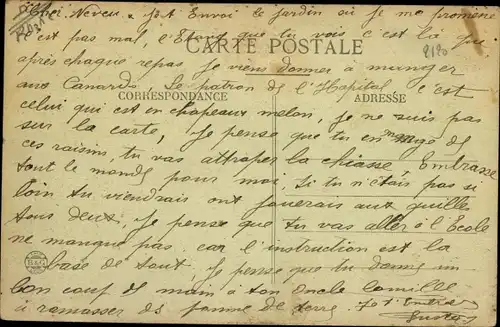 Cher Neveu Je t'Envoi le jardin où je me promène
c'est pas mal, l'Etang que tu vois c'est là qui
CARTE POSTALE
8180
après chaque repas Je viens donner a manger
aux Canards. Le patron de l'Hopital c'est
CORRESPONDANCE
ADRESSE
celui qui est en chapeaux melon, je ne suis pas
sur la carte, je pense que tu en mge de
ces raisins, tu vas attraper la chiasse, Embrasse
tout le monde pour moi, Si tu n'étais pas si
loin tu viendrais ont jouerais aux quilles
tous deux, Je pense que tu vas aller à l'Ecole
ne manque pas car l'instruction est la
B&G
base de tout, Je pense que tu donne un
bon coup de main à ton Oncle Camille
à ramasser ds pomme de terre